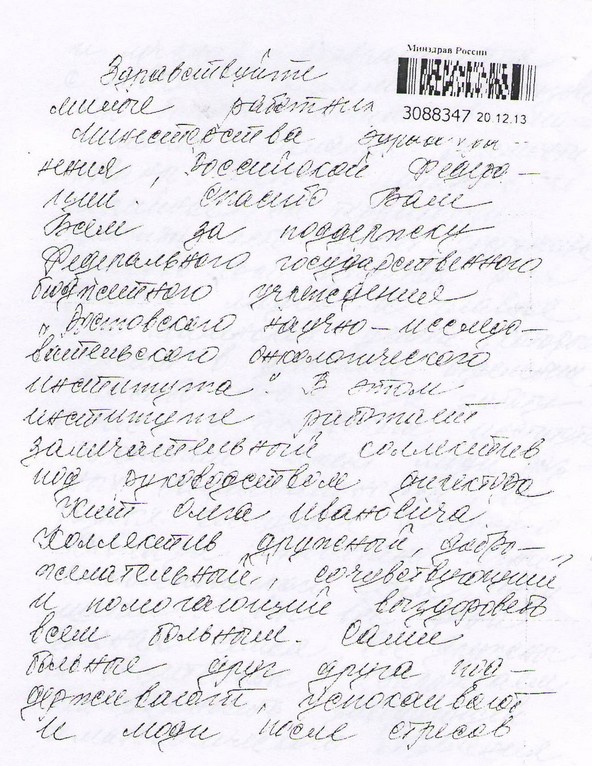 Минздрав России
3088347 20.12.13
Здравствуйте
милые работник
Министерства
нения, Российской Федера-
ции. Спасибо Вам
Всем за поддержку
Федерального государственного
бюджетного учреждения
„Ростовского научно-исследо-
вательского онкологического
института“. В этом
институте работает
замичательный коллектив
под руководством директора
Кит Олега Ивановича
Коллектив дружный, добро-
желательный, сочувствующий
и помогающий выздороветь
всем больным. Сами
больные друг друга под-
держивают, успокаивают
и люди после стресов